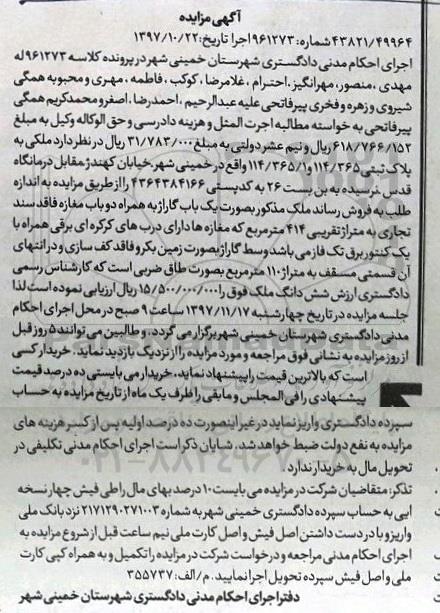 آگهی مزایده
۴۳۸۲۱/۴۹۹۶۴ شماره: ۹۶۱۲۷۳ اجرا تاریخ: ۱۳۹۷/۱۰/۲۲
اجرای احکام مدنی دادگستری شهرستان خمینی شهر در پرونده کلاسه ۹۶۱۲۷۳ له
مهدی ، منصور، مهرانگیز، احترام ، غلامرضا ، کوکب ، فاطمه ، مهری و محبوبه همگی
شیروی و زهره و فخری پیرفاتحی علیه عبدالرحیم ، احمدرضا ، اصغر و محمدکریم همگی
پیرفاتحی به خواسته مطالبه اجرت المثل و هزینه دادرسی و حق الوکاله وکیل به مبلغ
۶۱۸/۷۶۶/۱۵۲ ریال و نیم عشر دولتی به مبلغ ۳۱/۷۸۳/۰۰۰ ریال در نظر دارد ملکی به
پلاک ثبتی ۱۱۴/۳۶۵ و ۱۱۴/۳۶۵/۱ واقع در خمینی شهر، خیابان کهندژ مقابل درمانگاه
قدس ،نرسیده به بن بست ۲۶ به کدپستی ۴۳۶۴۳۸۴۱۶۶ را از طریق مزایده به اندازه
طلب به فروش رساند ملک مذکور بصورت یک باب گاراژ به همراه دو باب مغازه فاقد سند
تجاری به متراژ تقریبی ۴۱۴ مترمربع که مغازه ها دارای درب های کرکره ای برقی همراه با
یک کنتور برق تک فاز می باشد وسط گاراژ بصورت زمین بکر و فاقد کف سازی و در انتهای
آن قسمتی مسقف به متراژ ۱۱۰ مترمربع بصورت طاق ضربی است که کارشناس رسمی
دادگستری ارزش شش دانگ ملک فوق را ۱۵/۵۰۰/۰۰۰/۰۰۰ ریال ارزیابی نموده است لذا
جلسه مزایده در تاریخ چهارشنبه ۱۳۹۷/۱۱/۱۷ ساعت ۹ صبح در محل اجرای احکام
مدنی دادگستری شهرستان خمینی شهر برگزار می گردد، و طالبین می توانند ۵ روز قبل
از روز مزایده به نشانی فوق مراجعه و مورد مزایده را از نزدیک بازدید نماید. خریدار کسی
است که بالاترین قیمت را پیشنهاد نماید، خریدار می بایستی ده درصد قیمت
پیشنهادی را فی المجلس و مابقی را ظرف یک ماه از تاریخ مزایده به حساب
سپرده دادگستری واریز نماید در غیر اینصورت ده درصد اولیه پس از کسر هزینه های
مزایده به نفع دولت ضبط خواهد شد، شایان ذکر است اجرای احکام مدنی تکلیفی در
تحویل مال به خریدار ندارد .
تذکر: متقاضیان شرکت در مزایده می بایست ۱۰ درصد بهای مال را طی فیش چهار نسخه
ایی به حساب سپرده دادگستری خمینی شهر به شماره ۲۱۷۱۲۹۰۲۷۱۰۰۳ نزد بانک ملی
واریز و با در دست داشتن اصل فیش و اصل کارت ملی نیم ساعت قبل از شروع مزایده به
اجرای احکام مدنی مراجعه و درخواست شرکت در مزایده را تکمیل و به همراه کپی کارت
ملی و اصل فیش سپرده تحویل اجرا نمایید. م/الف: ۳۵۵۷۳۷
دفتر اجرای احکام مدنی دادگستری شهرستان خمینی شهر